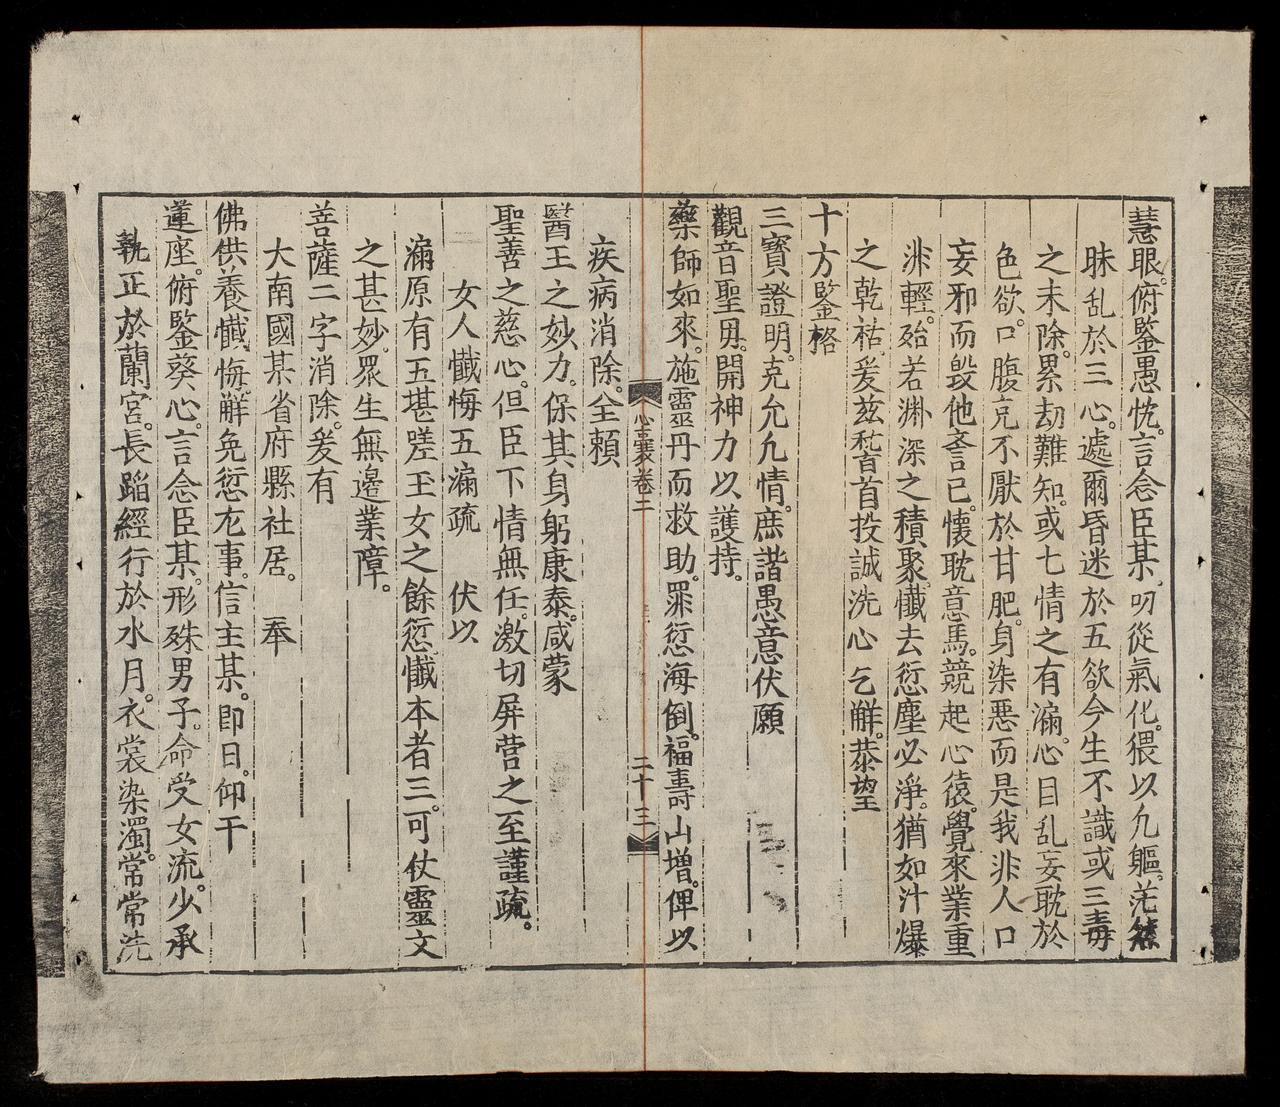 慧眼。俯鑒愚忱。言念臣某。叨從氣化。猥以凢軀。茫然
昧乱於三心。處爾昏迷於五欲今生不識或三毒
之未除。累劫難知。或七情之有漏。心目乱妄耽於
色欲。口腹充不厭於甘肥。身染惡而是我非人口
妄邪而毀他吝己。懷耽意馬。競起心猿。覺來業重
非輕。殆若渊深之積聚。懺去愆塵必淨。猶如汁爆
之乾祜爰茲嵇首投誠洗心乞觧。恭望
十方鑒格
三寳證明。克允凢情。庶諧愚意伏願
觀音聖毋。開神力以護持。
藥師如來。施靈丹而救助。罪愆海倒。福壽山增。俾以
心囊卷二
二十三
疾病消除。全頼
醫王之妙力。保其身躬康泰。咸蒙
聖善之慈心。但臣下情無任。激切屏营之至謹疏。
女人懺悔五漏疏 伏以
漏原有五堪嗟玉女之餘愆。懺本者三。可仗靈文
之甚妙。眾生無邊業障。
菩薩二字消除。爰有
大南國某省府縣社居。 奉
佛供養懺悔觧免愆尤事。信主某。即日。仰干
蓮座。俯鑒葵心。言念臣某。形殊男子。命受女流。少承
執正於蘭宮。長蹈經行於水月。衣裳染濁。常常洗